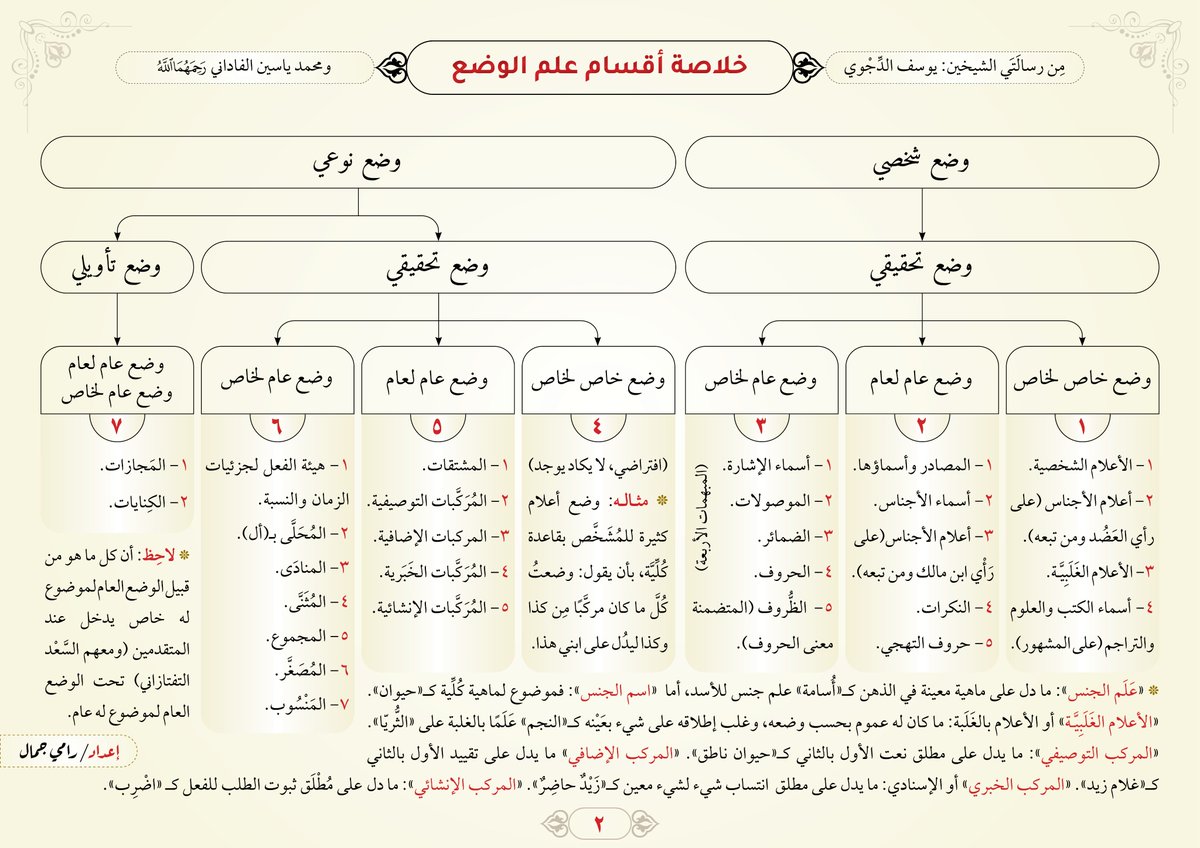 مِن رسالَتَي الشيخين: يوسف الدِّجْوي
خلاصة أقسام علم الوضع
ومحمد ياسين الفاداني رَحِمَهُمَاٱللَّهُ
وضع شخصي
وضع نوعي
وضع تحقيقي
وضع تحقيقي
وضع تأويلي
وضع خاص لخاص
١
١- الأعلام الشخصية.
٢- أعلام الأجناس (على
رأي العَضُد ومن تبعه).
٣- الأعلام الغَلَبِيَّة.
٤- أسماء الكتب والعلوم
والتراجم (على المشهور).
وضع عام لعام
٢
١- المصادر وأسماؤها.
٢- أسماء الأجناس.
٣- أعلام الأجناس(على
رَأْي ابن مالك ومن تبعه).
٤- النكرات.
٥- حروف التهجي.
وضع عام لخاص
٣
١- أسماء الإشارة.
٢- الموصولات.
٣- الضمائر.
٤- الحروف.
٥- الظُّروف (المتضمنة
معنى الحروف).
(المبهمات الأربعة)
وضع خاص لخاص
٤
(افتراضي، لا يكاد يوجد)
مثاله: وضع أعلام
كثيرة للمُشَخَّص بقاعدة
كُلِّيَّة، بأن يقول: وضعتُ
كُلَّ ما كان مركَّبًا مِن كذا
وكذا ليدُل على ابني هذا.
وضع عام لعام
٥
١- المشتقات.
٢- المُرَكَّبات التوصيفية.
٣- المركبات الإضافية.
٤- المُرَكَّبات الخَبَرية.
٥- المُرَكَّبات الإنشائية.
وضع عام لخاص
٦
١- هيئة الفعل لجزئيات
الزمان والنسبة.
٢- المُحَلَّى بـ(أل).
٣- المنادَى.
٤- المُثَنَّى.
٥- المجموع.
٦- المُصَغَّر.
٧- المَنْسُوب.
وضع عام لعام
وضع عام لخاص
٧
١- المَجازات.
٢- الكِنايات.
لاحِظ: أن كل ما هو من
قبيل الوضع العام لموضوع
له خاص يدخل عند
المتقدمين (ومعهم السَّعْد
التفتازاني) تحت الوضع
العام لموضوع له عام.
«عَلَم الجنس»: ما دل على ماهية معينة في الذهن كـ«أُسامة» علم جنس للأسد، أما «اسم الجنس»: فموضوع لماهية كُلِّية كـ«حيوان».
«الأعلام الغَلَبِيَّة» أو الأعلام بالغَلَبة: ما كان له عموم بحسب وضعه، وغلب إطلاقه على شيء بعَيْنه كـ«النجم» عَلَمًا بالغلبة على «الثُّريّا».
«المركب التوصيفي»: ما يدل على مطلق نعت الأول بالثاني كـ«حيوان ناطق». «المركب الإضافي» ما يدل على تقييد الأول بالثاني
كـ«غلام زيد». «المركب الخبري» أو الإسنادي: ما يدل على مطلق انتساب شيء لشيء معين كـ«زَيْدٌ حاضِرٌ». «المركب الإنشائي»: ما دل على مُطْلَق ثبوت الطلب للفعل كـ «اضْرِب».
إعداد/ رامي جمال
٢